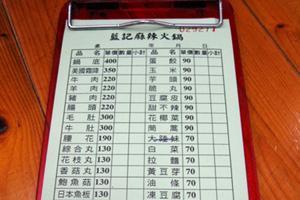 029271
藍記麻辣火鍋
桌 年 月 日
品名 單價 數量 小計 品名 單價 數量 小計
鍋底 400 蛋餃 90
美國霜降 350 玉米 90
牛肉 220 芋頭 90
羊肉 220 脆丸 90
豬肉 220 豆腐皮 90
腸頭 220 甜不辣 90
毛肚 300 花椰菜 90
牛肚 300 茼蒿 90
腰花 190 大陸妹 90
綜合丸 130 白菜 90
花枝丸 130 拉麵 70
香菇丸 130 黃豆芽 70
鮑魚菇 130 油條 70
日本魚板 130 凍豆腐 70